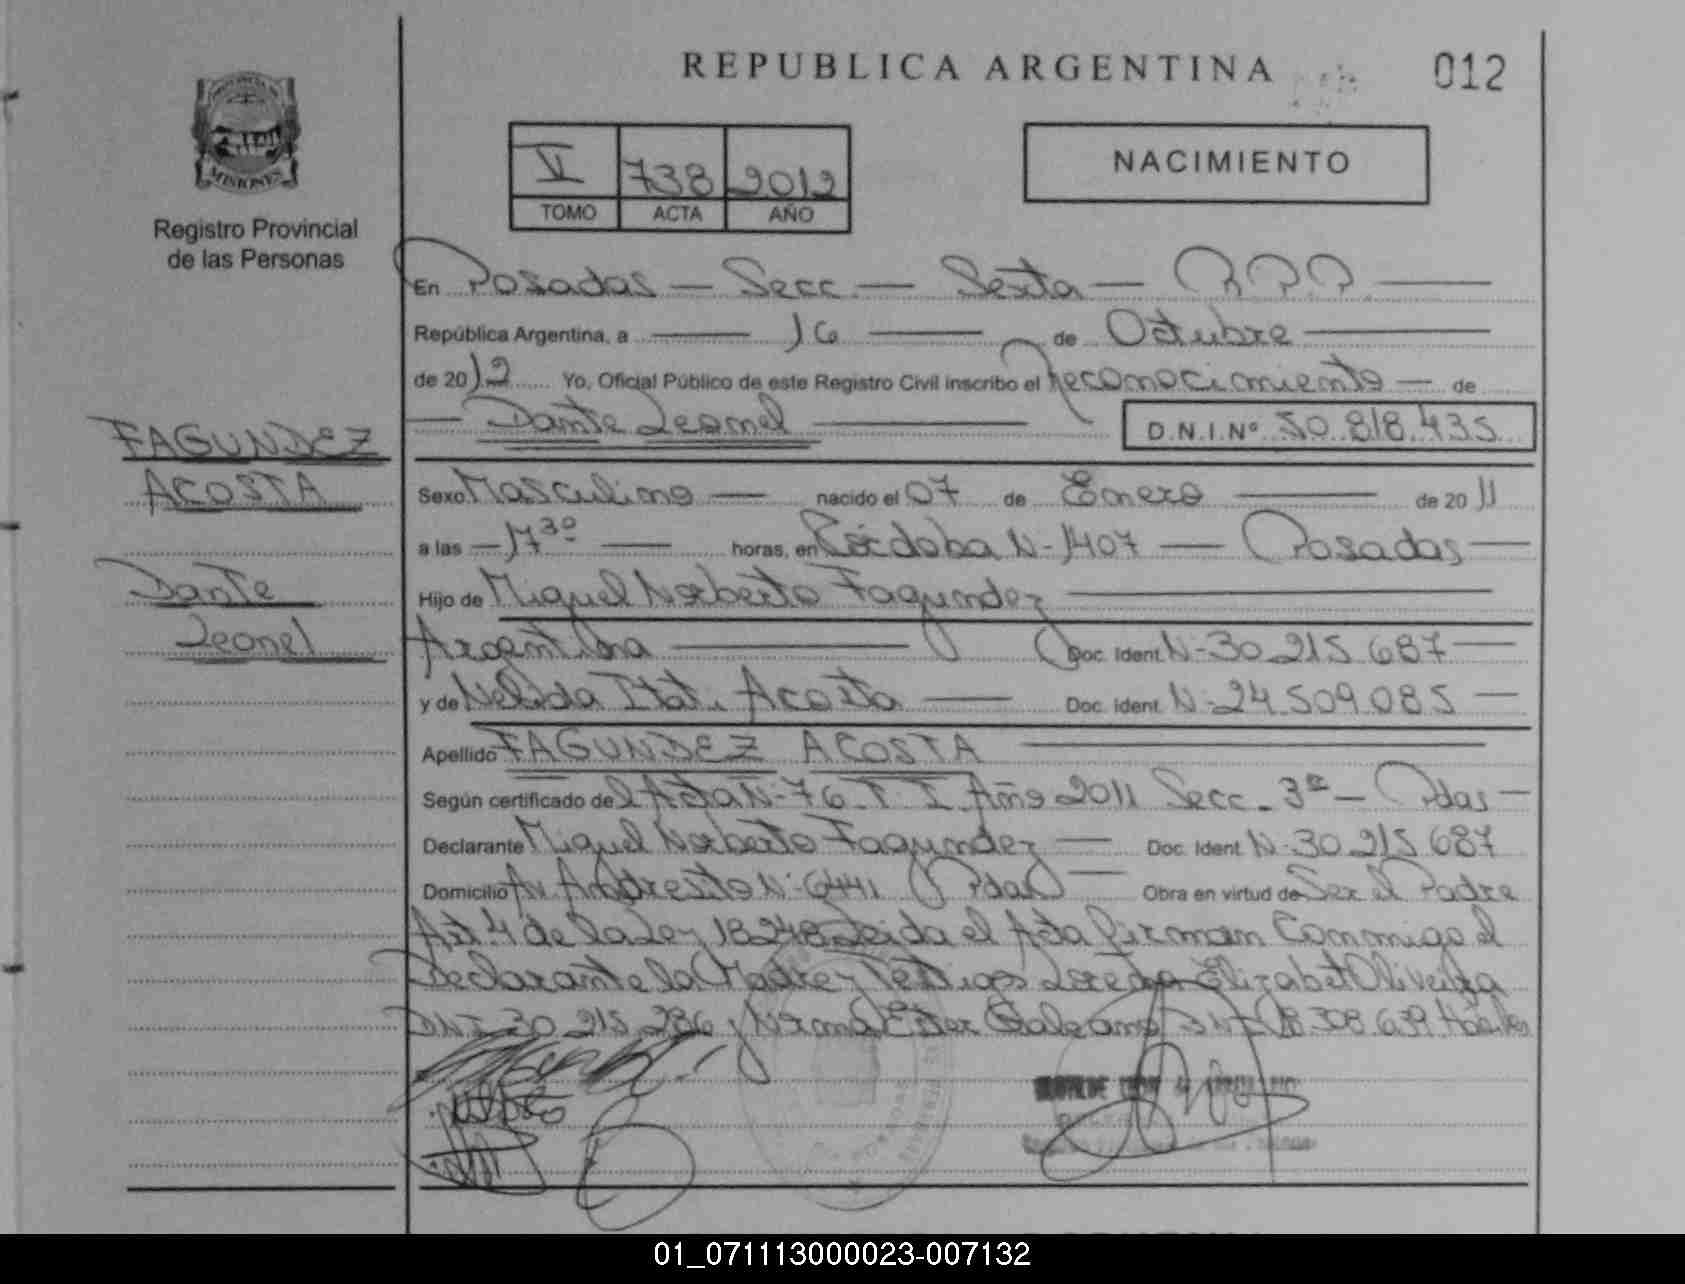 REPUBLICA ARGENTINA
012
MISIONES
Registro Provincial
de las Personas
V 738 2012
TOMO ACTA AÑO
NACIMIENTO
En Posadas - Secc. - Sexta - R.P.P.
República Argentina, a 16 de Octubre
de 2012 Yo, Oficial Público de este Registro Civil inscribo el reconocimiento de
Dante Leonel D.N.I.Nº 50.818.435
FAGUNDEZ
ACOSTA
Dante
Leonel
Sexo Masculino nacido el 07 de Enero de 2011
a las 17 30 horas, en Córdoba N-1407 - Posadas
Hijo de Miguel Norberto Fagundez
Argentina Doc. Ident. N-30.215.687
y de Nelida Itati Acosta Doc. Ident. N-24.509.085
Apellido FAGUNDEZ ACOSTA
Según certificado del Acta N-76 T. I Año 2011 Secc - 3ª - Pdas
Declarante Miguel Norberto Fagundez Doc. Ident. N-30.215.687
Domicilio Av. Andresito N-6441 Pdas Obra en virtud de Ser el Padre
Art. 4 de la Ley 18248 Leida el Acta firman Conmigo el
Declarante la Madre y Testigos Lorena Elizabet Oliveira
DNI 30.215.286 y Norma Ester Galeano DNI 18.308.639
01_071113000023-007132